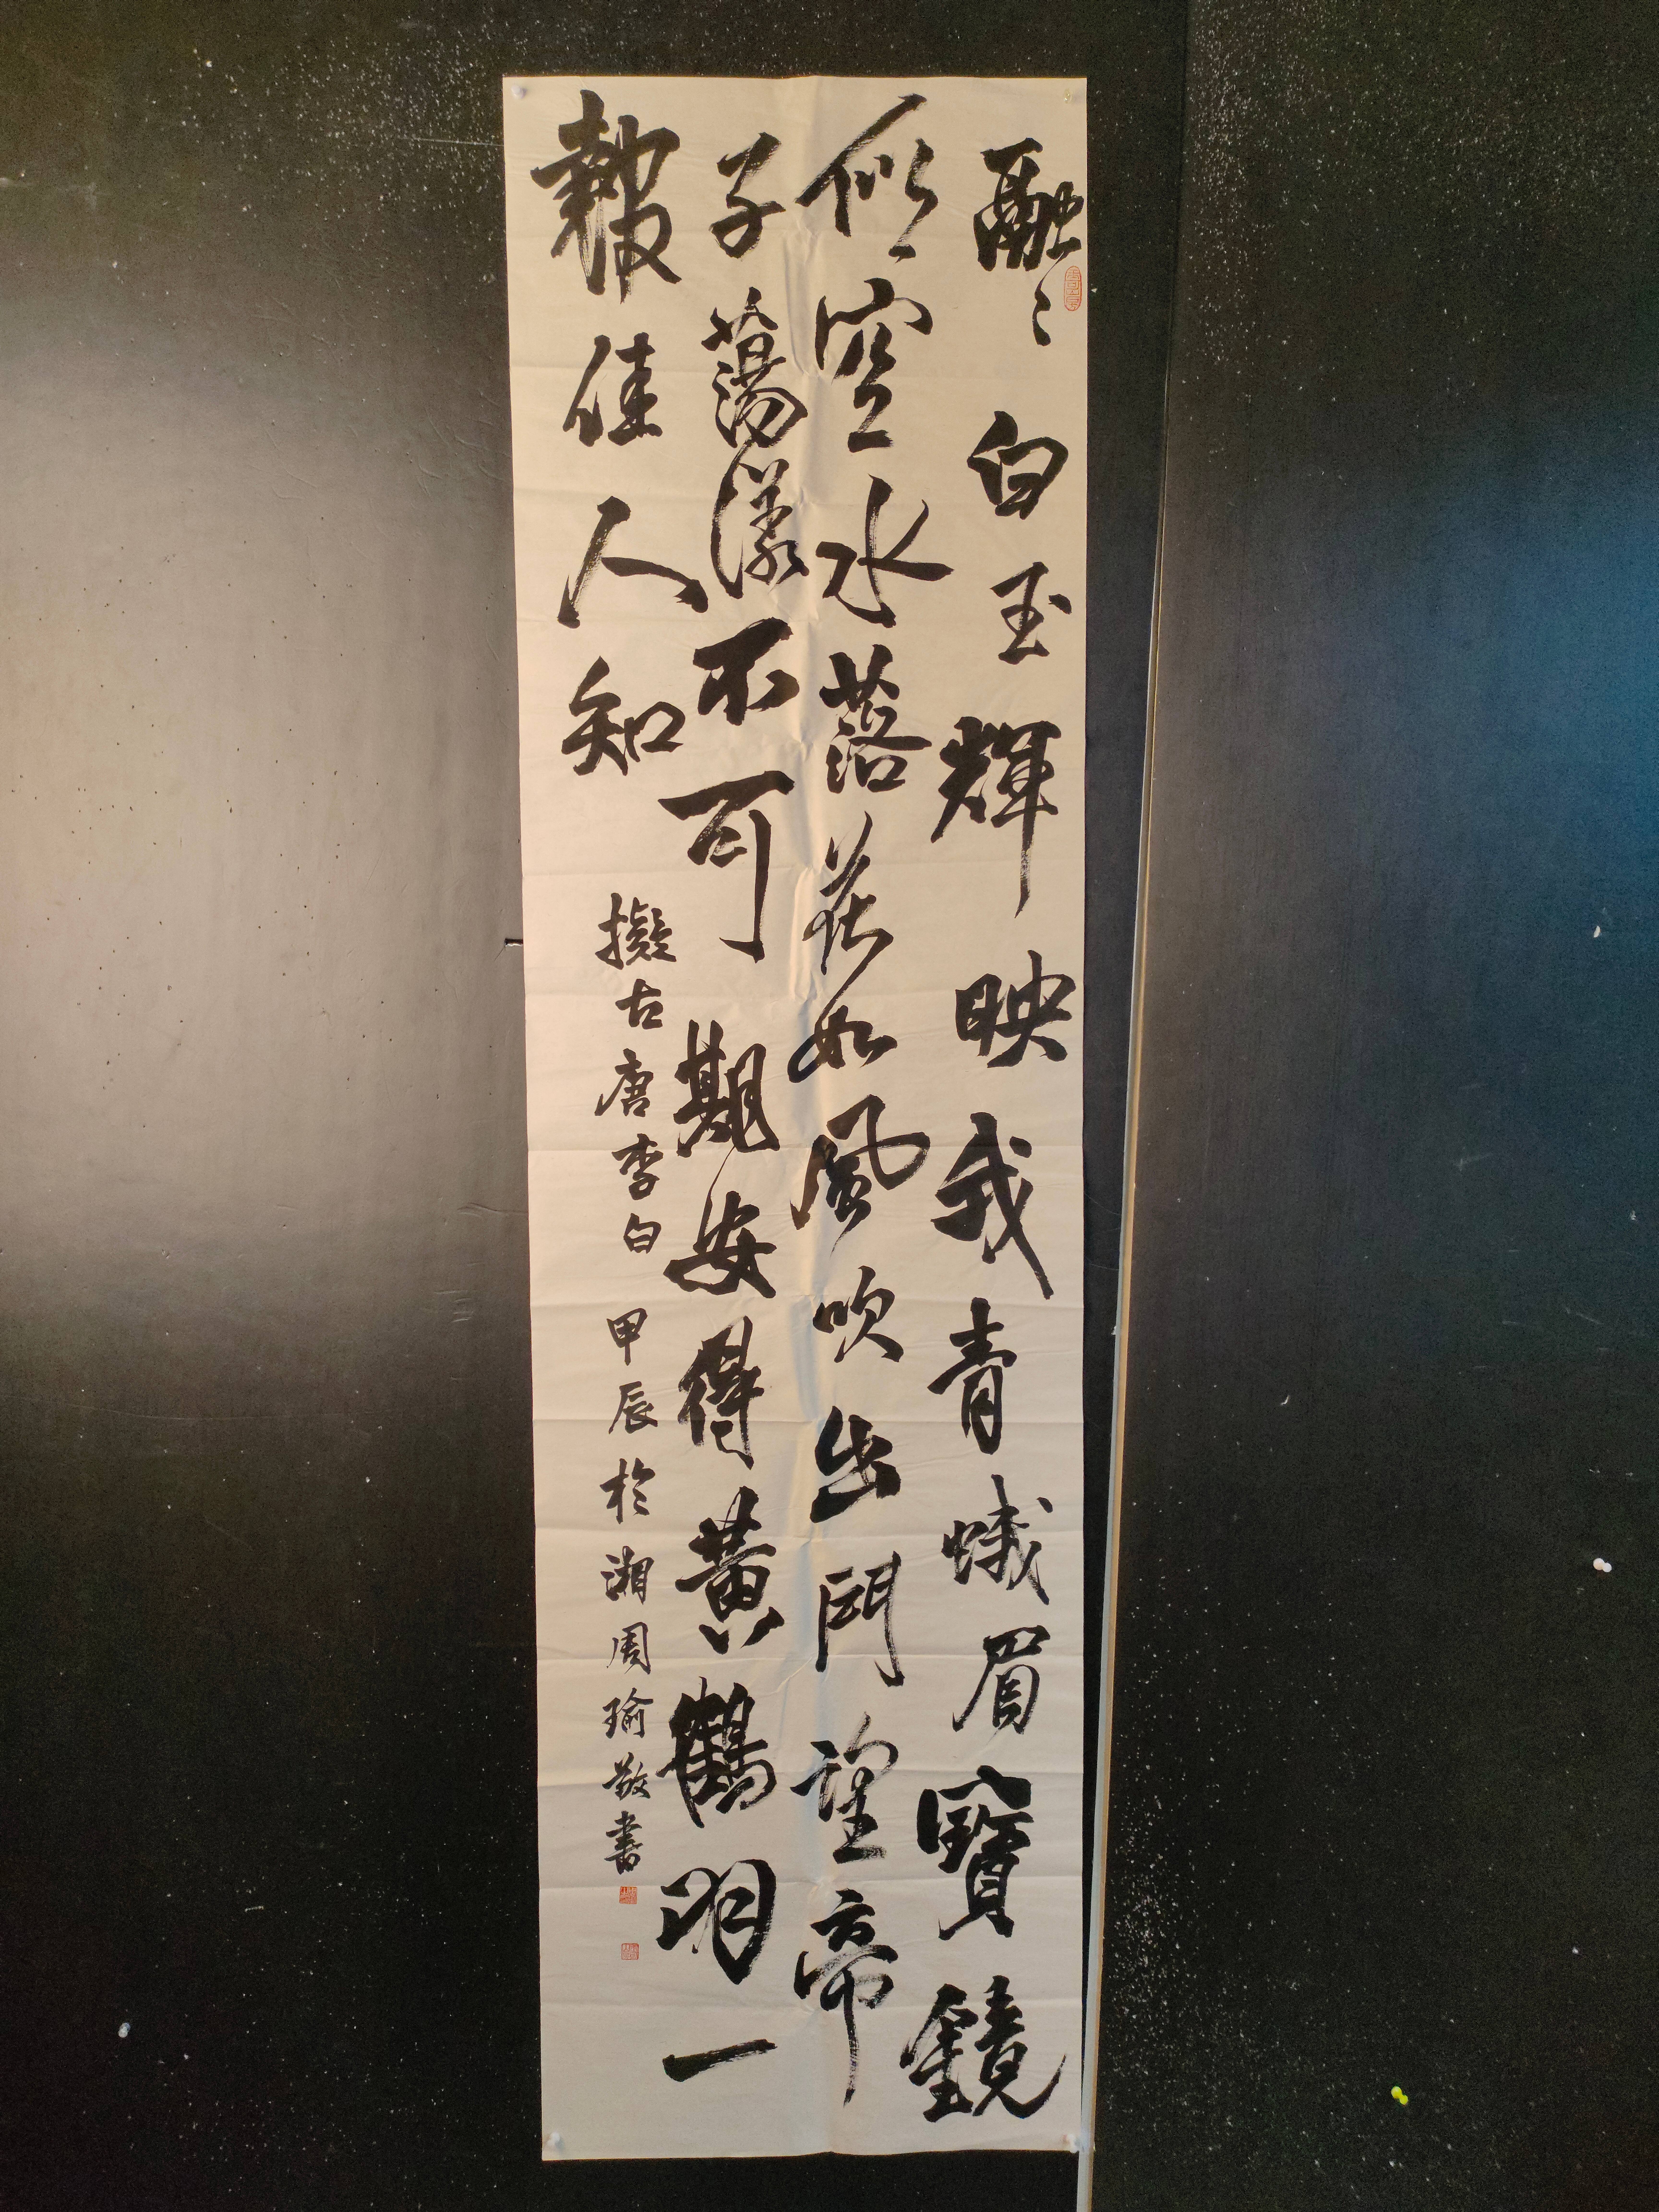 融〻白玉輝映我青蛾眉寶鏡
似空水落花如風吹出門望帝
子蕩漾不可期安得黃鶴羽一
報佳人知
擬古唐李白 甲辰於湘周瑜敬書